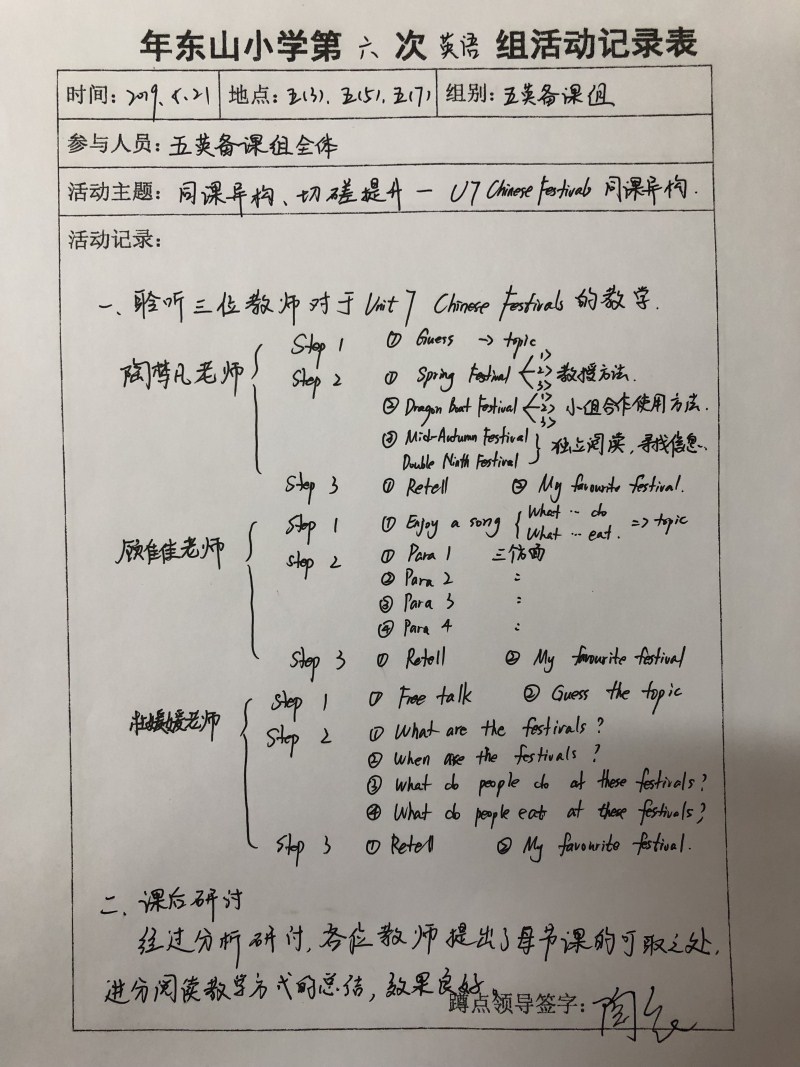 年东山小学第 六 次 英语 组活动记录表
时间：2019.5.21 地点：五(3)、五(5)、五(7) 组别：五英备课组
参与人员：五英备课组全体
活动主题：同课异构、切磋提升 — U7 Chinese Festivals 同课异构.
活动记录：
一、聆听三位教师对于 Unit 7 Chinese Festivals 的教学.
陶梦凡老师
Step 1 ① Guess → topic
Step 2 ① Spring Festival 1> 2> 3> 教授方法.
② Dragon Boat Festival 1> 2> 3> 小组合作使用方法.
③ Mid-Autumn Festival
Double Ninth Festival } 独立阅读，寻找信息.
Step 3 ① Retell ② My favourite festival.
顾佳佳老师
Step 1 ① Enjoy a song { What … do
What … eat. => topic
Step 2 ① Para 1 三个方面
② Para 2 :
③ Para 3 :
④ Para 4 :
Step 3 ① Retell ② My favourite festival
媛媛老师
Step 1 ① Free talk ② Guess the topic
Step 2 ① What are the festivals?
② When are the festivals?
③ What do people do at these festivals?
④ What do people eat at these festivals?
Step 3 ① Retell ② My favourite festival.
二、课后研讨
经过分析研讨，各位教师提出了每节课的可取之处，
进分阅读教学方式的总结，效果良好。
蹲点领导签字：陶